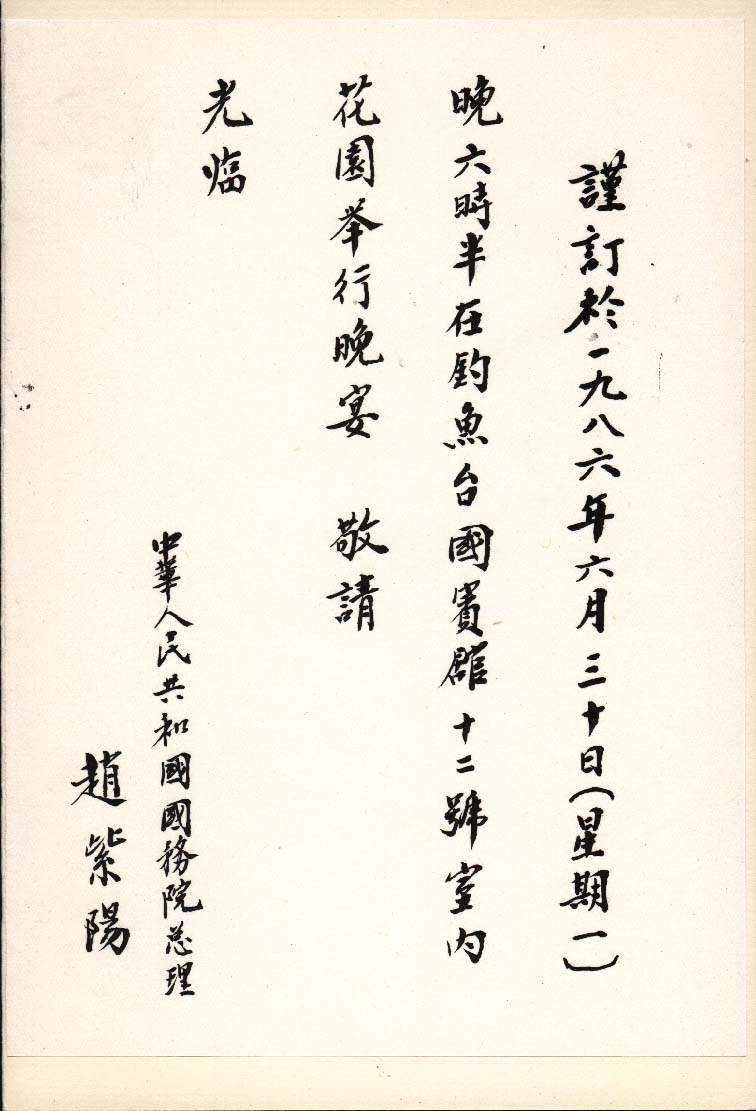 謹訂於一九八六年六月三十日(星期一)
晚六時半在釣魚台國賓館十二號室内
花園举行晚宴 敬請
光临
中華人民共和國國務院总理
趙紫陽